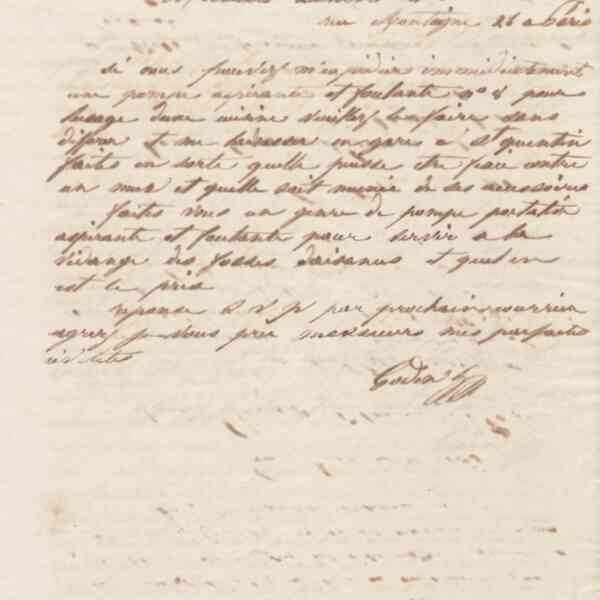 rue Montaigne 26 a Paris
si vous pouvez m'expédier immédiatement
une pompe aspirante et foulante n° 8 pour
lusage dune usine veuillez le faire sans
diferer et me ladresser en gare a St quentin
faites en sorte quelle puisse etre fixée contre
un mur et quelle soit munie de ses accessoires
faites vous un genre de pompe portative
aspirante et foulante pour servir a la
vidange des fosses daisances et quel en
est le prix
reponse S V P par prochain courrier
agréez je vous prie messieurs mes parfaites
civilités
Godin